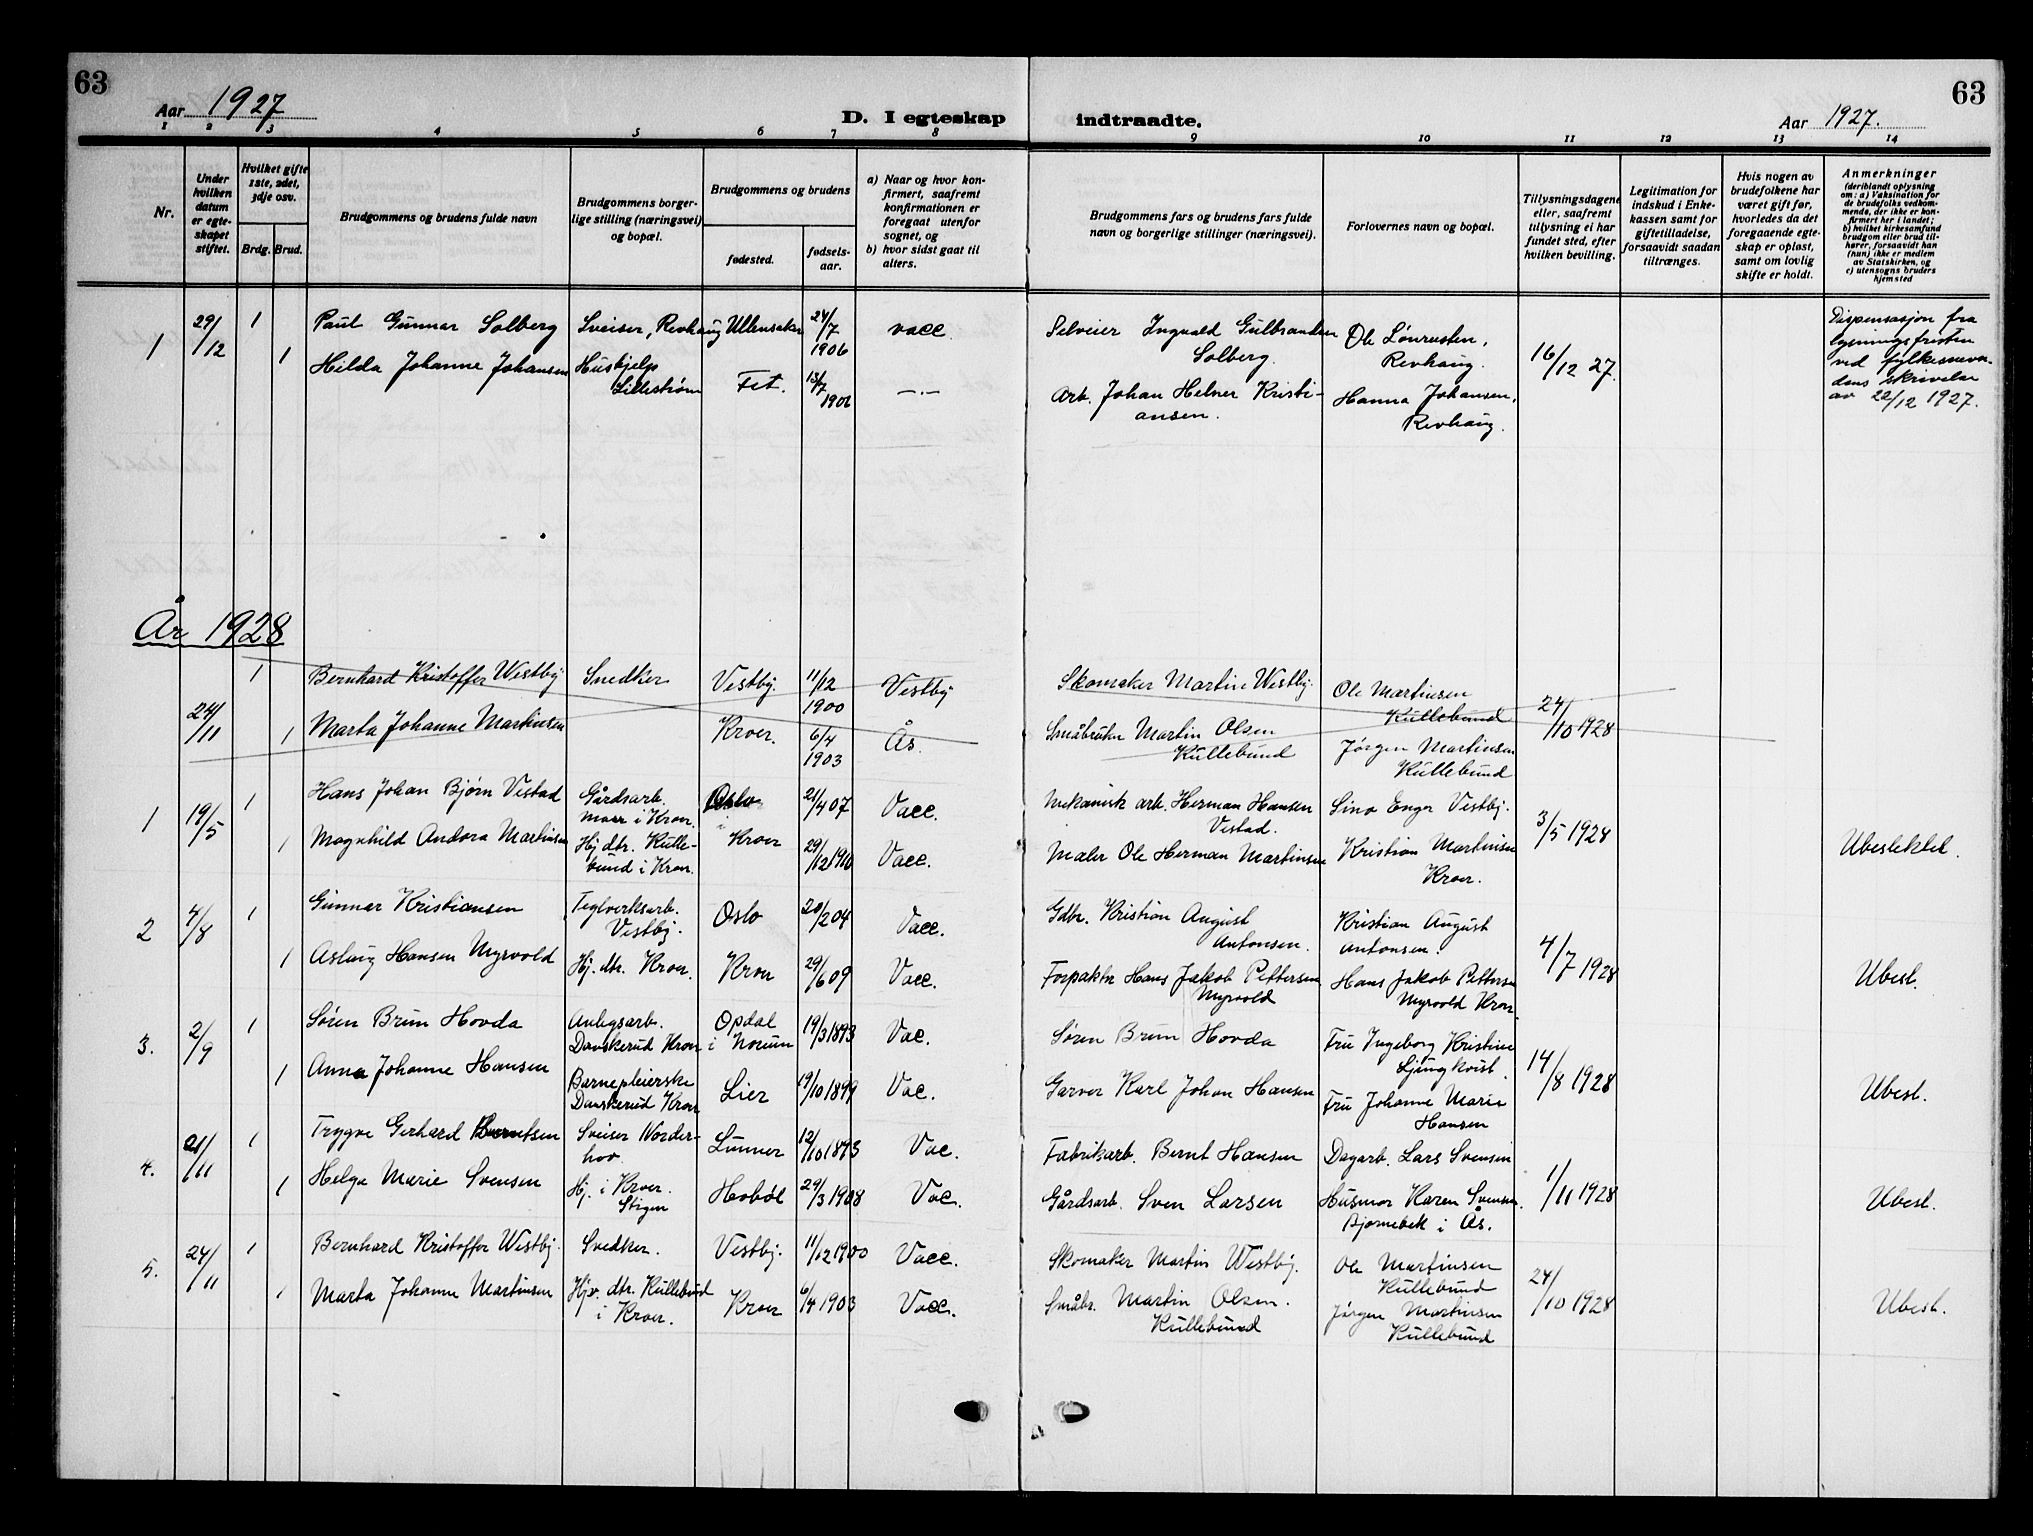 63
63
Aar 1927
D. I egteskap indtraadte.
Aar 1927.
1 2 3 4 5 6 7 8 9 10 11 12 13 14
Nr.
Under hvilken datum er egteskapet stiftet.
Hvilket gifte 1ste, 2det, 3dje osv.
Brdg. Brud.
Brudgommens og brudens fulde navn
Brudgommens borgerlige stilling (næringsvei) og bopæl.
Brudgommens og brudens
fødested.
fødselsaar.
a) Naar og hvor konfirmert, saafremt konfirmationen er foregaat utenfor sognet, og
b) hvor sidst gaat til alters.
Brudgommens fars og brudens fars fulde navn og borgerlige stillinger (næringsvei).
Forlovernes navn og bopæl.
Tillysningsdagene eller, saafremt tillysning ei har fundet sted, efter hvilken bevilling.
Legitimation for indskud i Enkekassen samt for giftetilladelse, forsaavidt saadan tiltrænges.
Hvis nogen av brudefolkene har været gift før, hvorledes da det foregaaende egteskap er opløst, samt om lovlig skifte er holdt.
Anmerkninger
(deriblandt oplysning om: a) Vaksination for de brudefolks vedkommende, der ikke er konfirmert her i landet; b) hvilket kirkesamfund brudgom eller brud tilhører, forsaavidt han (hun) ikke er medlem av Statskirken, og c) utensogns bruders hjemsted
1 29/12 1 Paul Gunnar Solberg Sveiser, Revhaug Ullensaker 24/7 1906 vacc. Selveier Ingvald Gulbrandsen Solberg. Ole Lönrusten, Revhaug. 16/12 27. Dispensasjon fra lysningsfristen ved fylkesmandens skrivelse av 22/12 1927.
1 Hilda Johanne Johansen Hushjelp Lillestrøm Fet. 13/7 1906 —.— Arb. Johan Helner Kristiansen. Hanna Johansen, Revhaug.
År 1928
24/11 1 Bernhard Kristoffer Westby Snedker Vestby. 11/12 1900 Vestby Skomaker Martin Westby. Ole Martinsen Kullebund 24/10 1928
1 Marta Johanne Martinsen Kroer. 6/4 1903 Ås. Småbruker Martin Olsen Kullebund Jørgen Martinsen Kullebund
1 19/5 1 Hans Johan Bjørn Vestad Gårdsarb. moer i Kroer. Oslo 21/4 07 Vacc. mekanisk arb. Herman Hansen Vestad. Sina Enger Vestby. 3/5 1928
1 Magnhild Andora Martinsen Hj. dtr. Kullebund i Kroer. i Kroer 29/12 1910 Vacc. Maler Ole Herman Martinsen Kristian Martinsen Kroer. Ubeslektet.
2 4/8 1 Gunnar Kristiansen Teglverksarb. Vestby. Oslo 20/2 04 Vacc. Gdbr. Kristian August Antonsen. Kristian August Antonsen. 4/7 1928
1 Aslaug Hansen Myrvold Hj. dtr. Kroer. Kroer 29/6 09 Vacc. Forpakter Hans Jakob Pettersen Myrvold Hans Jakob Pettersen Myrvold Kroer. Ubesl.
3. 2/9 1 Søren Brun Hovda Anlegsarb. Danskerud Kroer Opdal i Noum 19/3 1893 Vac. Søren Brun Hovda Fru Ingeborg Kristine Ljungkvist. 14/8 1928
1 Anna Johanne Hansen Barnepleierske Danskerud Kroer Lier 19/10 1899 Vac. Garver Karl Johan Hansen Fru Johanne Marie Hansen Ubesl.
4. 21/11 1 Trygve Gerhard Berntsen Sveiser Norderhov. Lunner 12/10 1893 Vac. Fabrikarb. Bernt Hansen Dagarb. Lars Svensen 1/11 1928
1 Helga Marie Svensen Hj. i Kroer. Stigen Hobøl 29/3 1908 Vac. Gårdsarb. Sven Larsen Husmor Karen Svensen. Bjørnebek i Ås. Ubesl.
5. 24/11 1 Bernhard Kristoffer Westby. Snedker. Vestby. 11/12 1900 Vacc. Skomaker Martin Westby. Ole Martinsen Kullebund 24/10 1928
1 Marta Johanne Martinsen Hjv. dtr. Kullebund i Kroer. Kroer 6/4 1903 Vacc. Småbr. Martin Olsen. Kullebund Jørgen Martinsen Kullebund Ubesl.